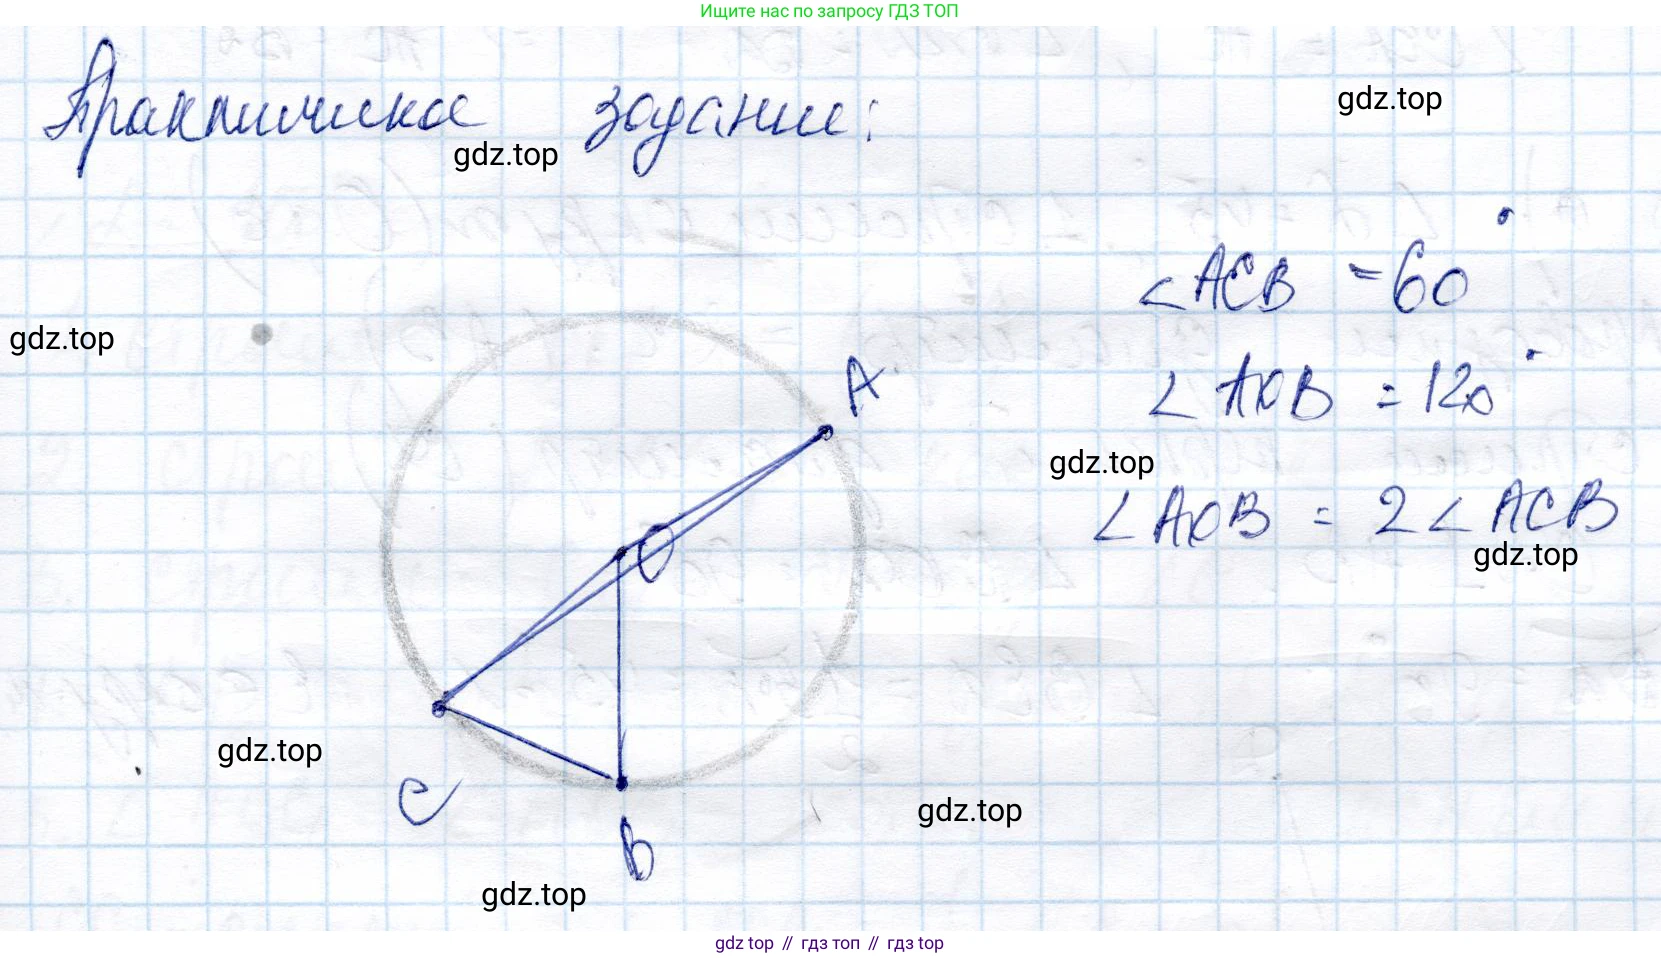 Ищите нас по запросу ГДЗ ТОП
Практичика задание:
gdz.top
gdz.top
∠ACB = 60°
gdz.top
A
∠AOB = 120°
gdz.top
∠AOB = 2∠ACB
O
gdz.top
gdz.top
C
gdz.top
B
gdz.top
gdz top // гдз топ // гдз top